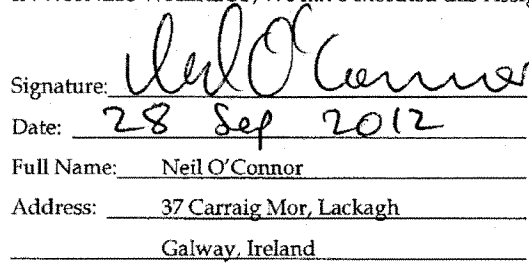 Signature: Neil O'Connor
Date: 28 Sep 2012
Full Name: Neil O'Connor
Address: 37 Carraig Mor, Lackagh
Galway, Ireland